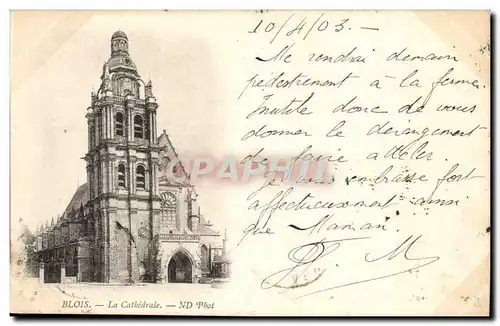 10/4/03.
Me rendrai demain
pédestrement à la ferme
Inutile donc de vous
donner le dérangement
de faire atteler.
Je vous embrasse fort
affectueusement ainsi
que Maman.
CPARAMA
BLOIS. — La Cathédrale. — ND Phot